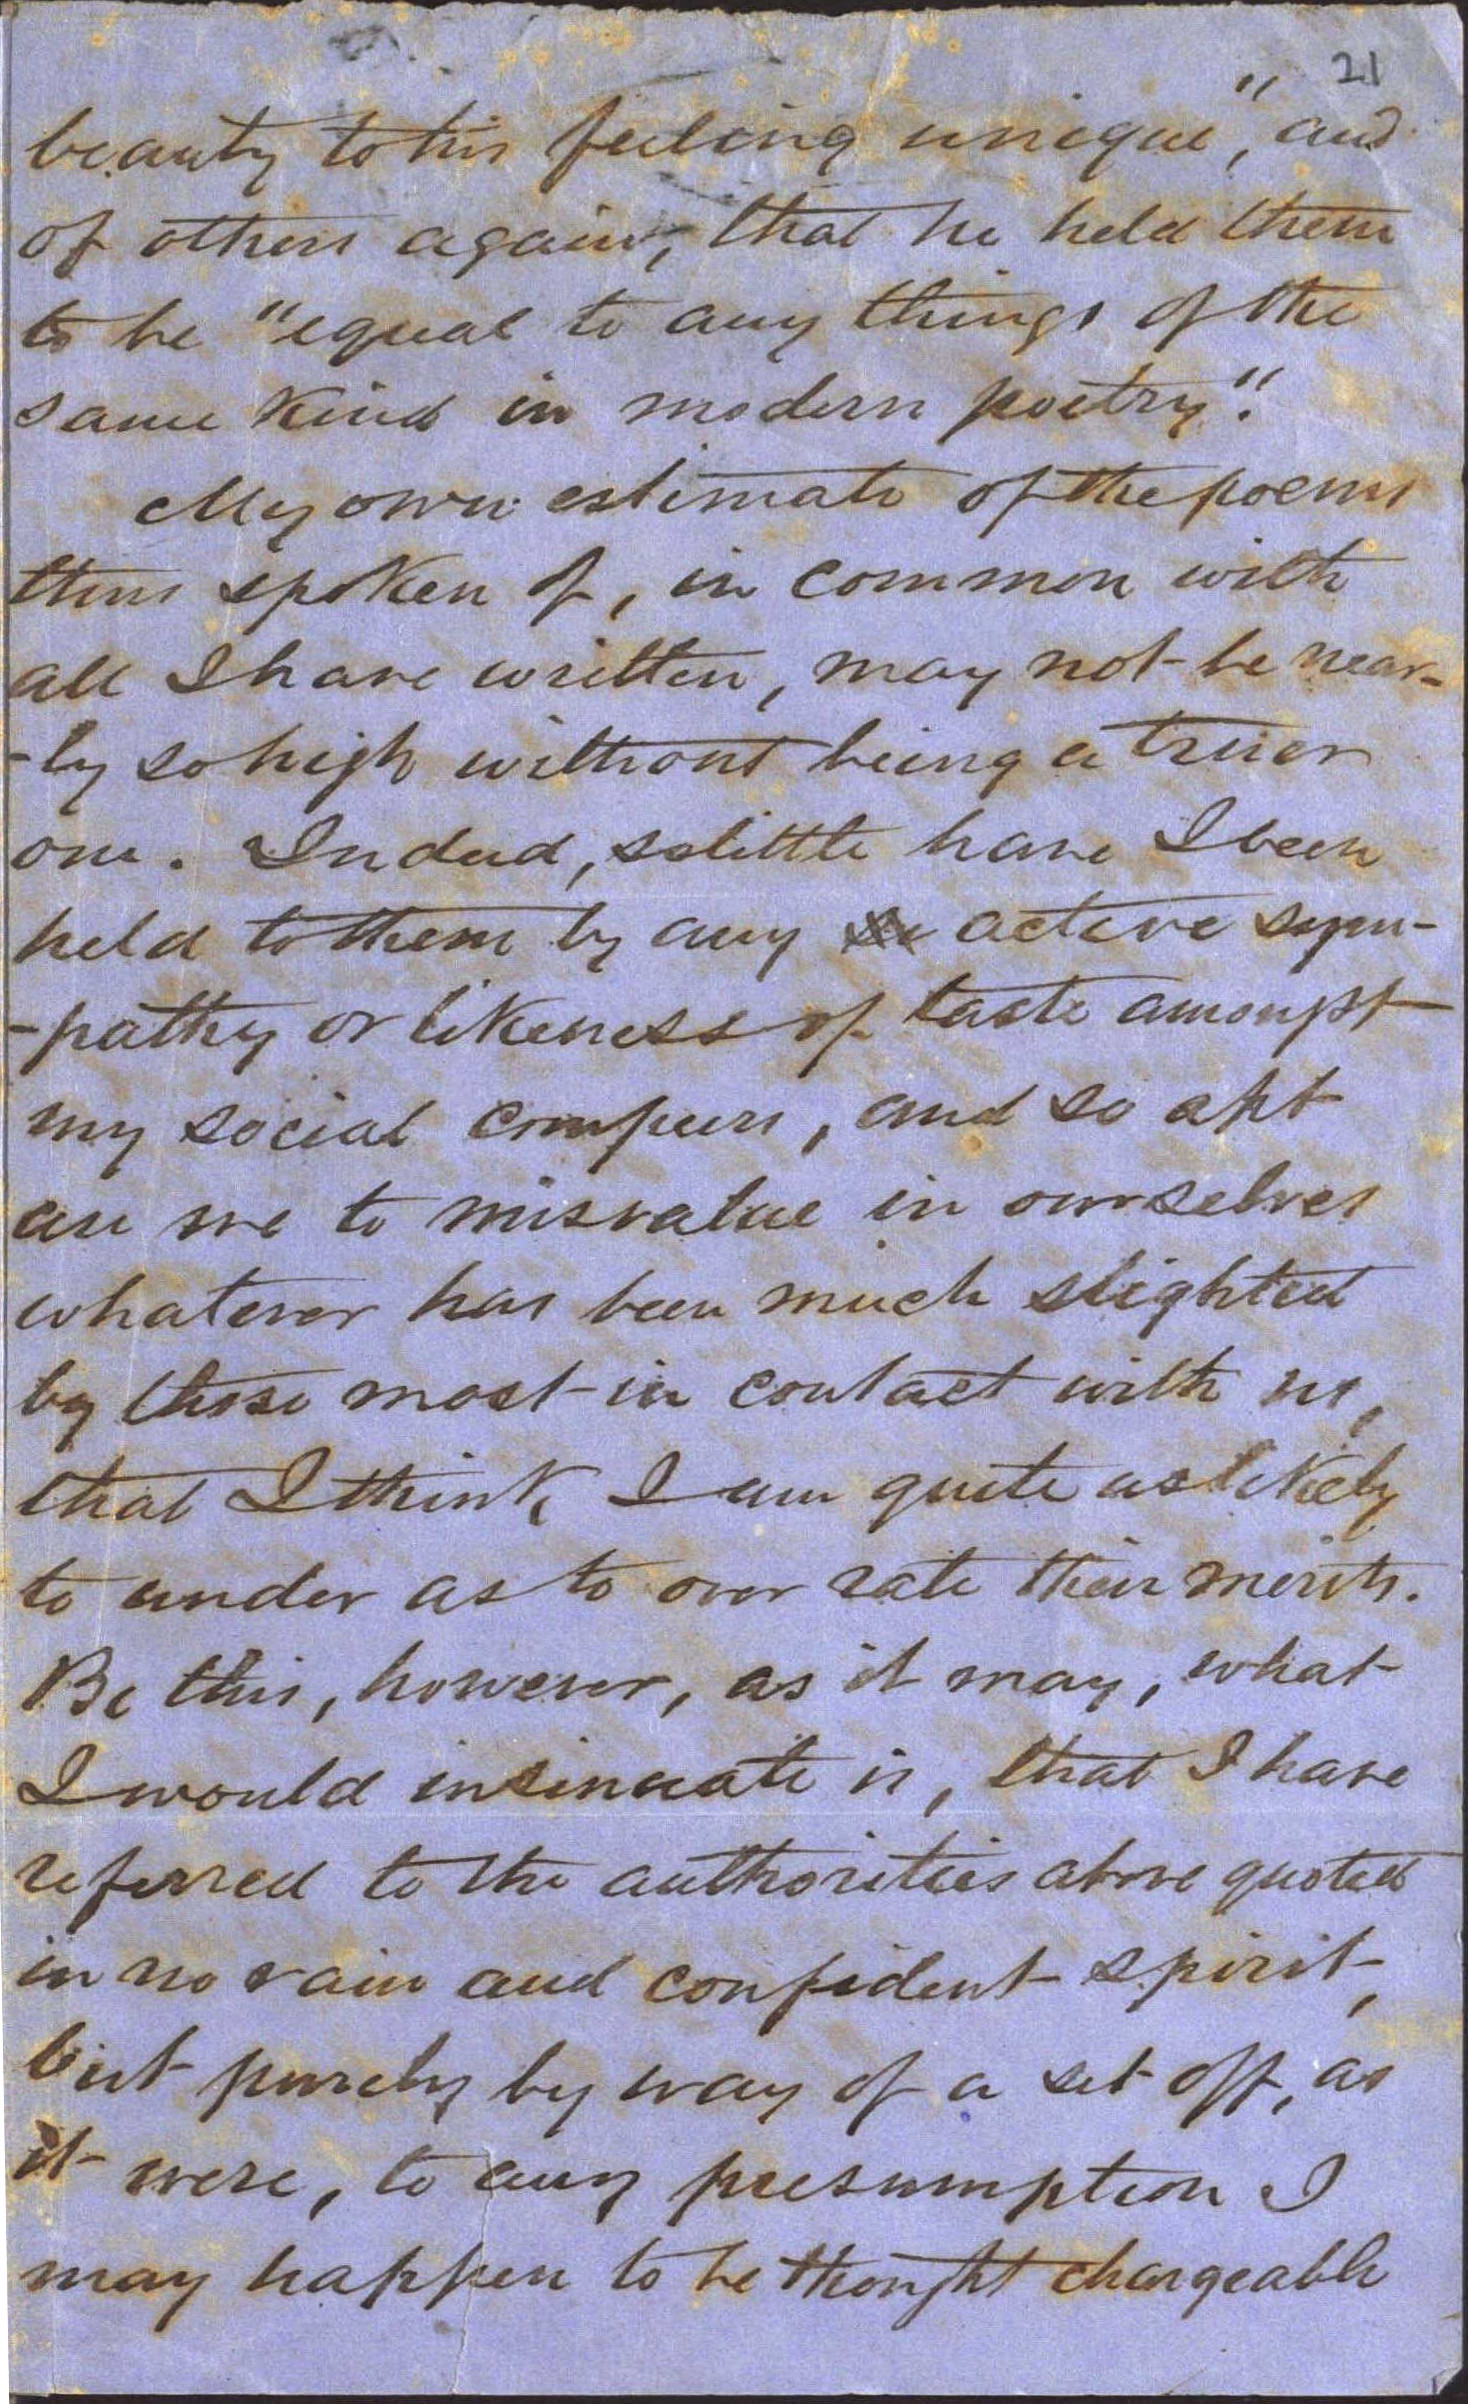 21
beauty to his feeling unique", and
of others again, that he held them
to be "equal to any things of the
same kind in modern poetry".
My own estimate of the poems
thus spoken of, in common with
all I have written, may not be near-
-ly so high without being a truer
one. Indeed, so little have I been
held to them by any active sym-
-pathy or likeness of taste amongst
my social compeers, and so apt
are we to misvalue in ourselves
whatever has been much slighted
by those most in contact with us,
that I think I am quite as likely
to under as to over rate their merits.
Be this, however, as it may, what
I would insinuate is, that I have
referred to the authorities above quoted
in no vain and confident spirit,
but purely by way of a set off, as
it were, to any presumption I
may happen to be thought chargeable